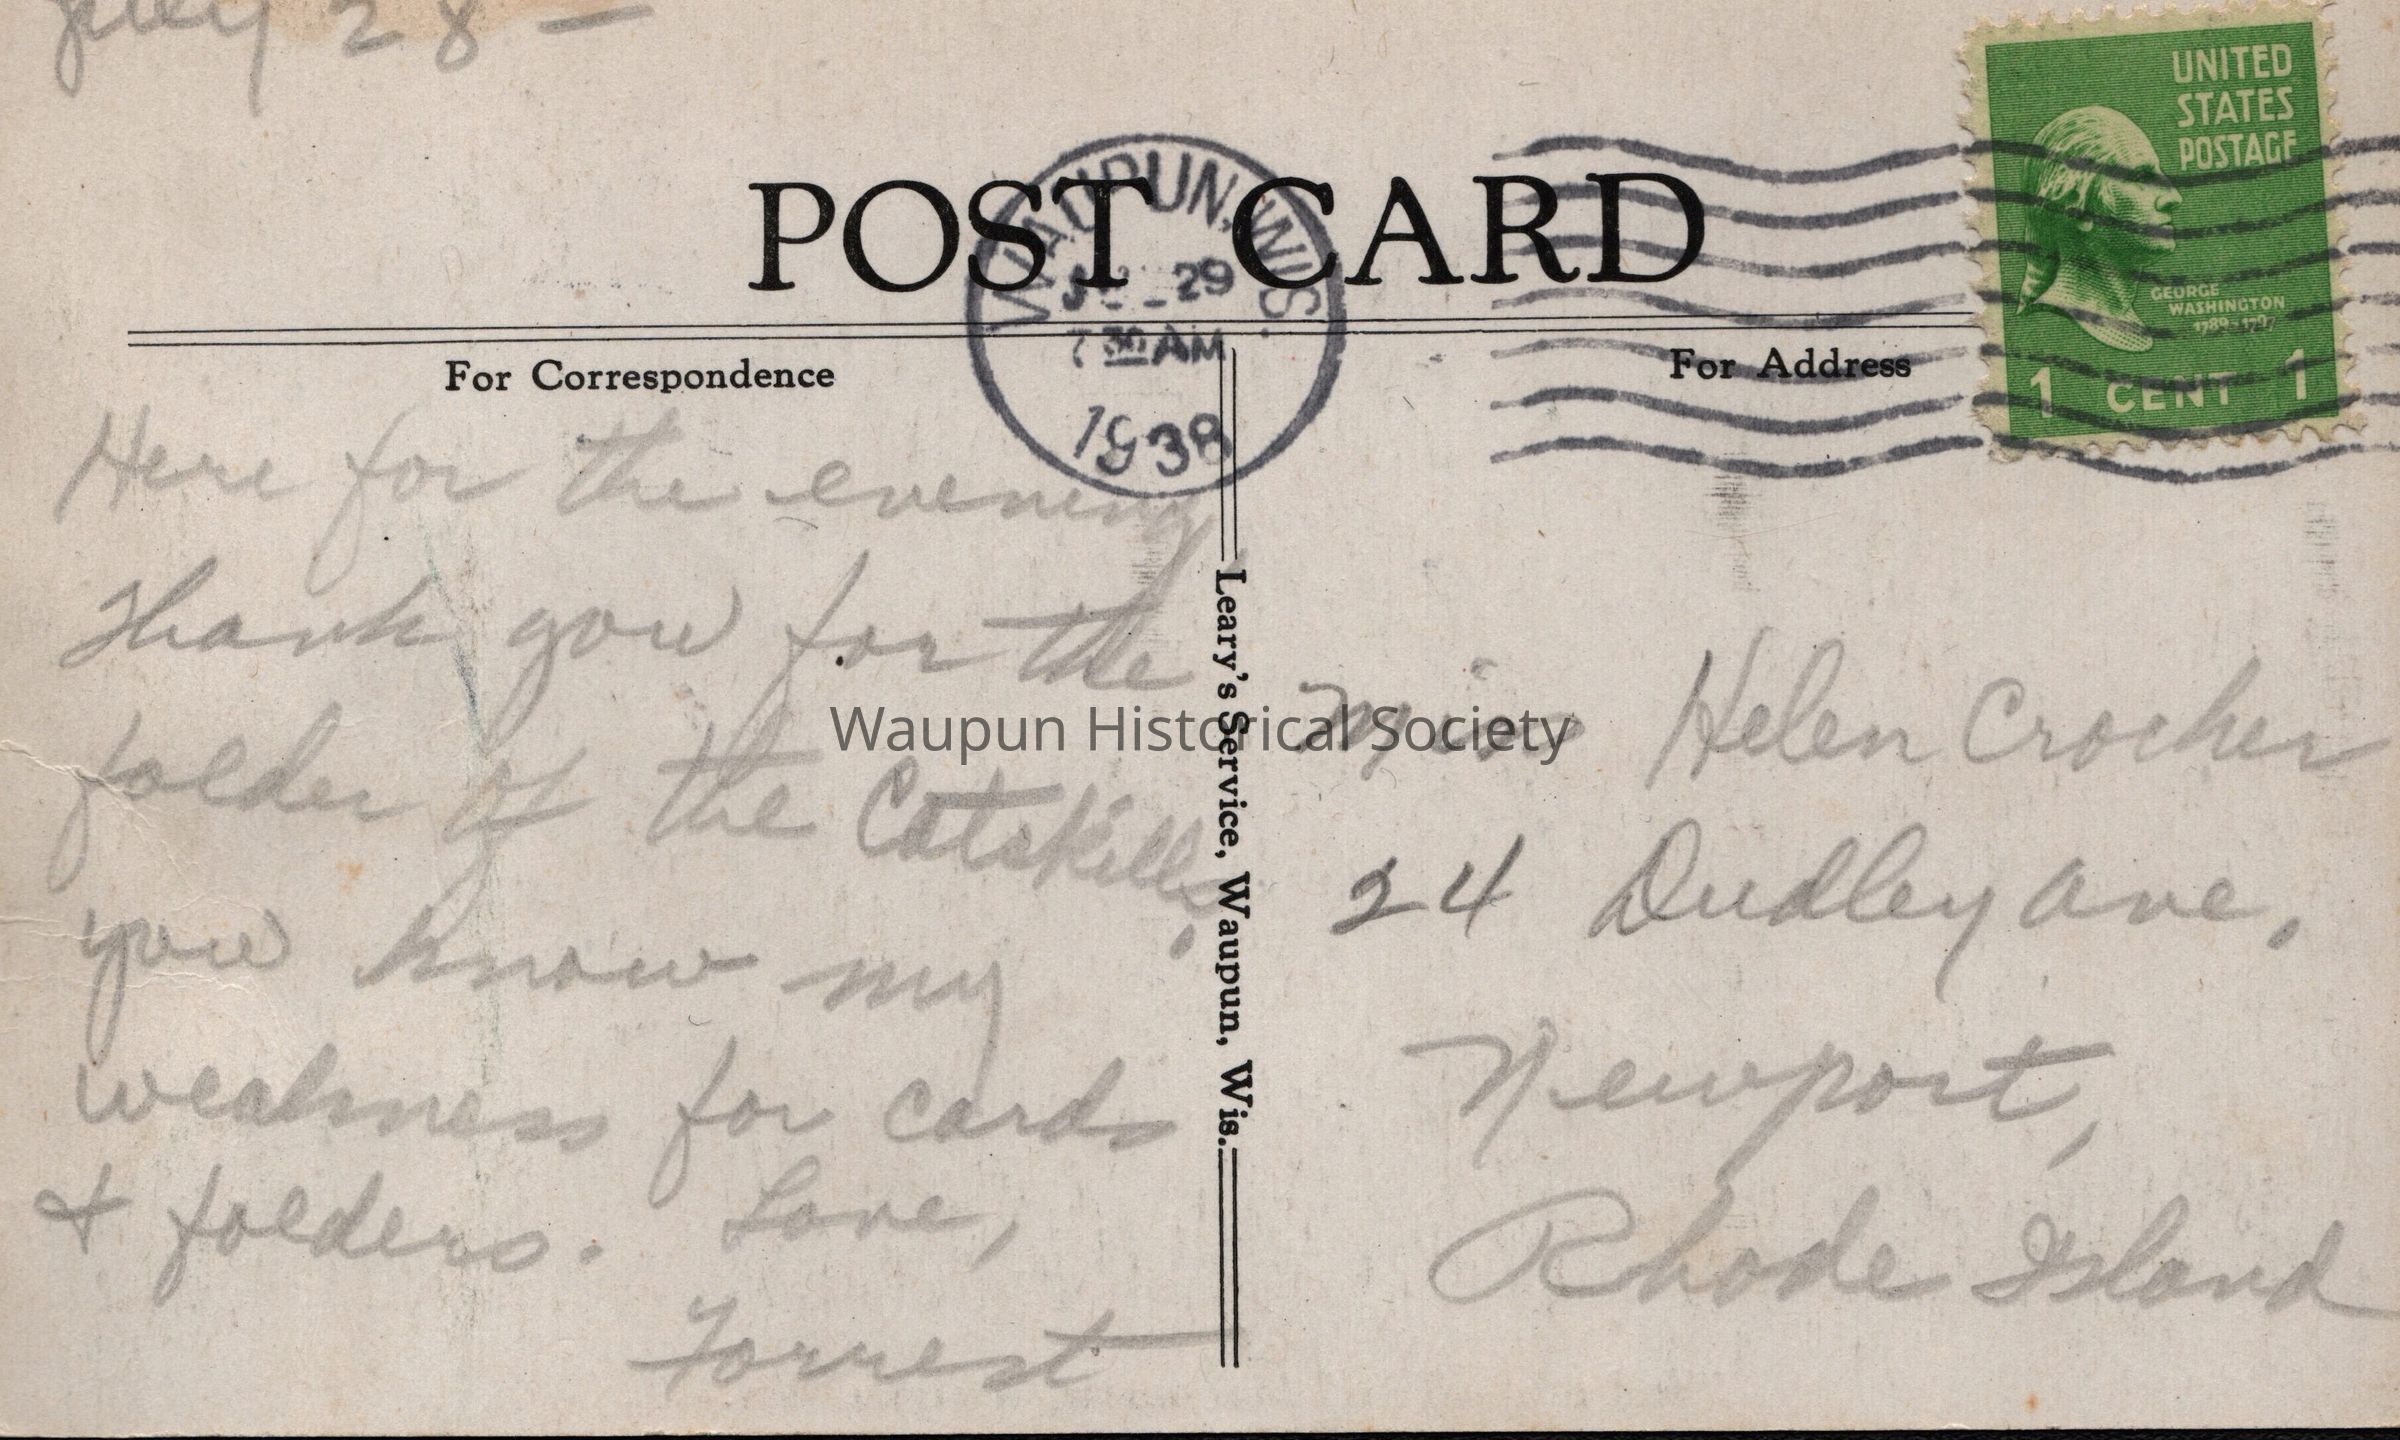 July 28 —
UNITED
STATES
POSTAGE
GEORGE
WASHINGTON
1789-1797
1 CENT 1
POST CARD
WAUPUN, WIS.
29
7 30 AM
1938
For Correspondence
For Address
Here for the evening
Thank you for the
folder of the Catskills.
you know my
weakness for cards
& folders. Love,
Forrest
Leary's Service, Waupun, Wis.
Miss Helen Crocker
24 Dudley Ave,
Newport,
Rhode Island
Waupun Historical Society